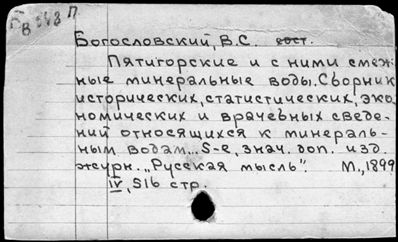 Б 548 П
В
Богословский, В.С. сост.
Пятигорские и с ними смеж-
ные минеральные воды. Сборник
исторических, статистических, эко-
номических и врачебных сведе-
ний относящихся к минераль-
ным водам... 5-е, знач. доп. изд.
журн. „Русская мысль". М., 1899
IV, 516 стр.